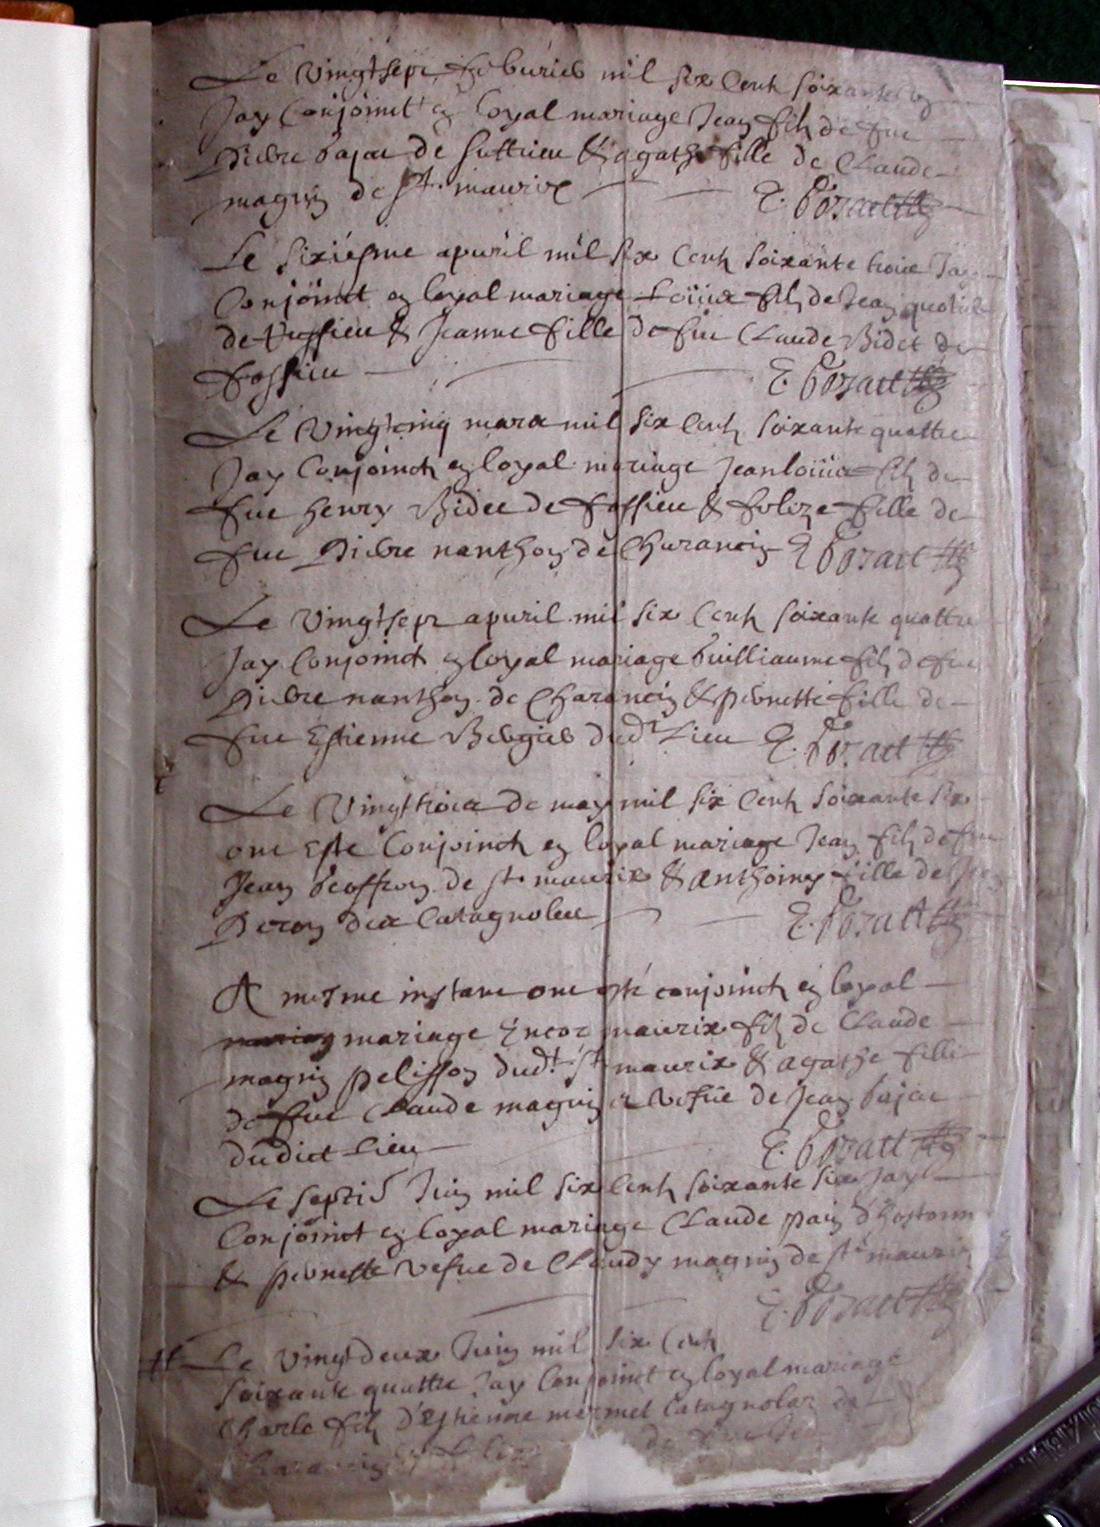 Le vingtsept febvrieb mil six cent soixante
Jay Conjoinct en loyal mariage Jean filz de feu
Piebre bajac de suttrieu & agathe fille de Claude
magnin de st. maurix E. Gozact
Le sixiesme apvril mil six cent soixante troix Jay
Conjoinct en loyal mariage Loüix filz de Jean
de & Jeanne fille de feu Claude Bidet de
fossieu E. Gozact
Le vingtcinq marx mil six cent soixante quattre
Jay Conjoinct en loyal mariage Jeanloüix filz de
feu henry Bidet de fossieu & fille de
feu Piebre nanthon de Charancin E Gozact
Le vingtsept apvril mil six cent soixante quattre
Jay Conjoinct en loyal mariage Guilliaume filz de feu
Piebre nanthon de Charancin & pebnette fille de
feu Estienne Bebgieb dudt Lieu E. Gozact
Le vingttroix de may mil six cent soixante six
ont esté Conjoinct en loyal mariage Jean filz de feu
Jean Geoffron de st maurix & anthoiny fille de
Peron dix Catagnolex E. Gozact
A mesme instant ont esté conjoinct en loyal
mariage Encor maurix filz de Claude
magnin pelisson dudt st maurix & agathe fille
de feu Claude magnin et vefue de Jean bajac
dudict Lieu E. Gozact
Le Juin mil six cent soixante six Jay
Conjoinct en loyal mariage Claude d'hostonn
& pebnette vefue de Claudy magnin de st maurix
E. Gozact
Le vingtdeux Juin mil six cent
soixante quattre Jay Conjoinct en loyal mariage
Charle filz D'Estienne mermet Catagnolaz de